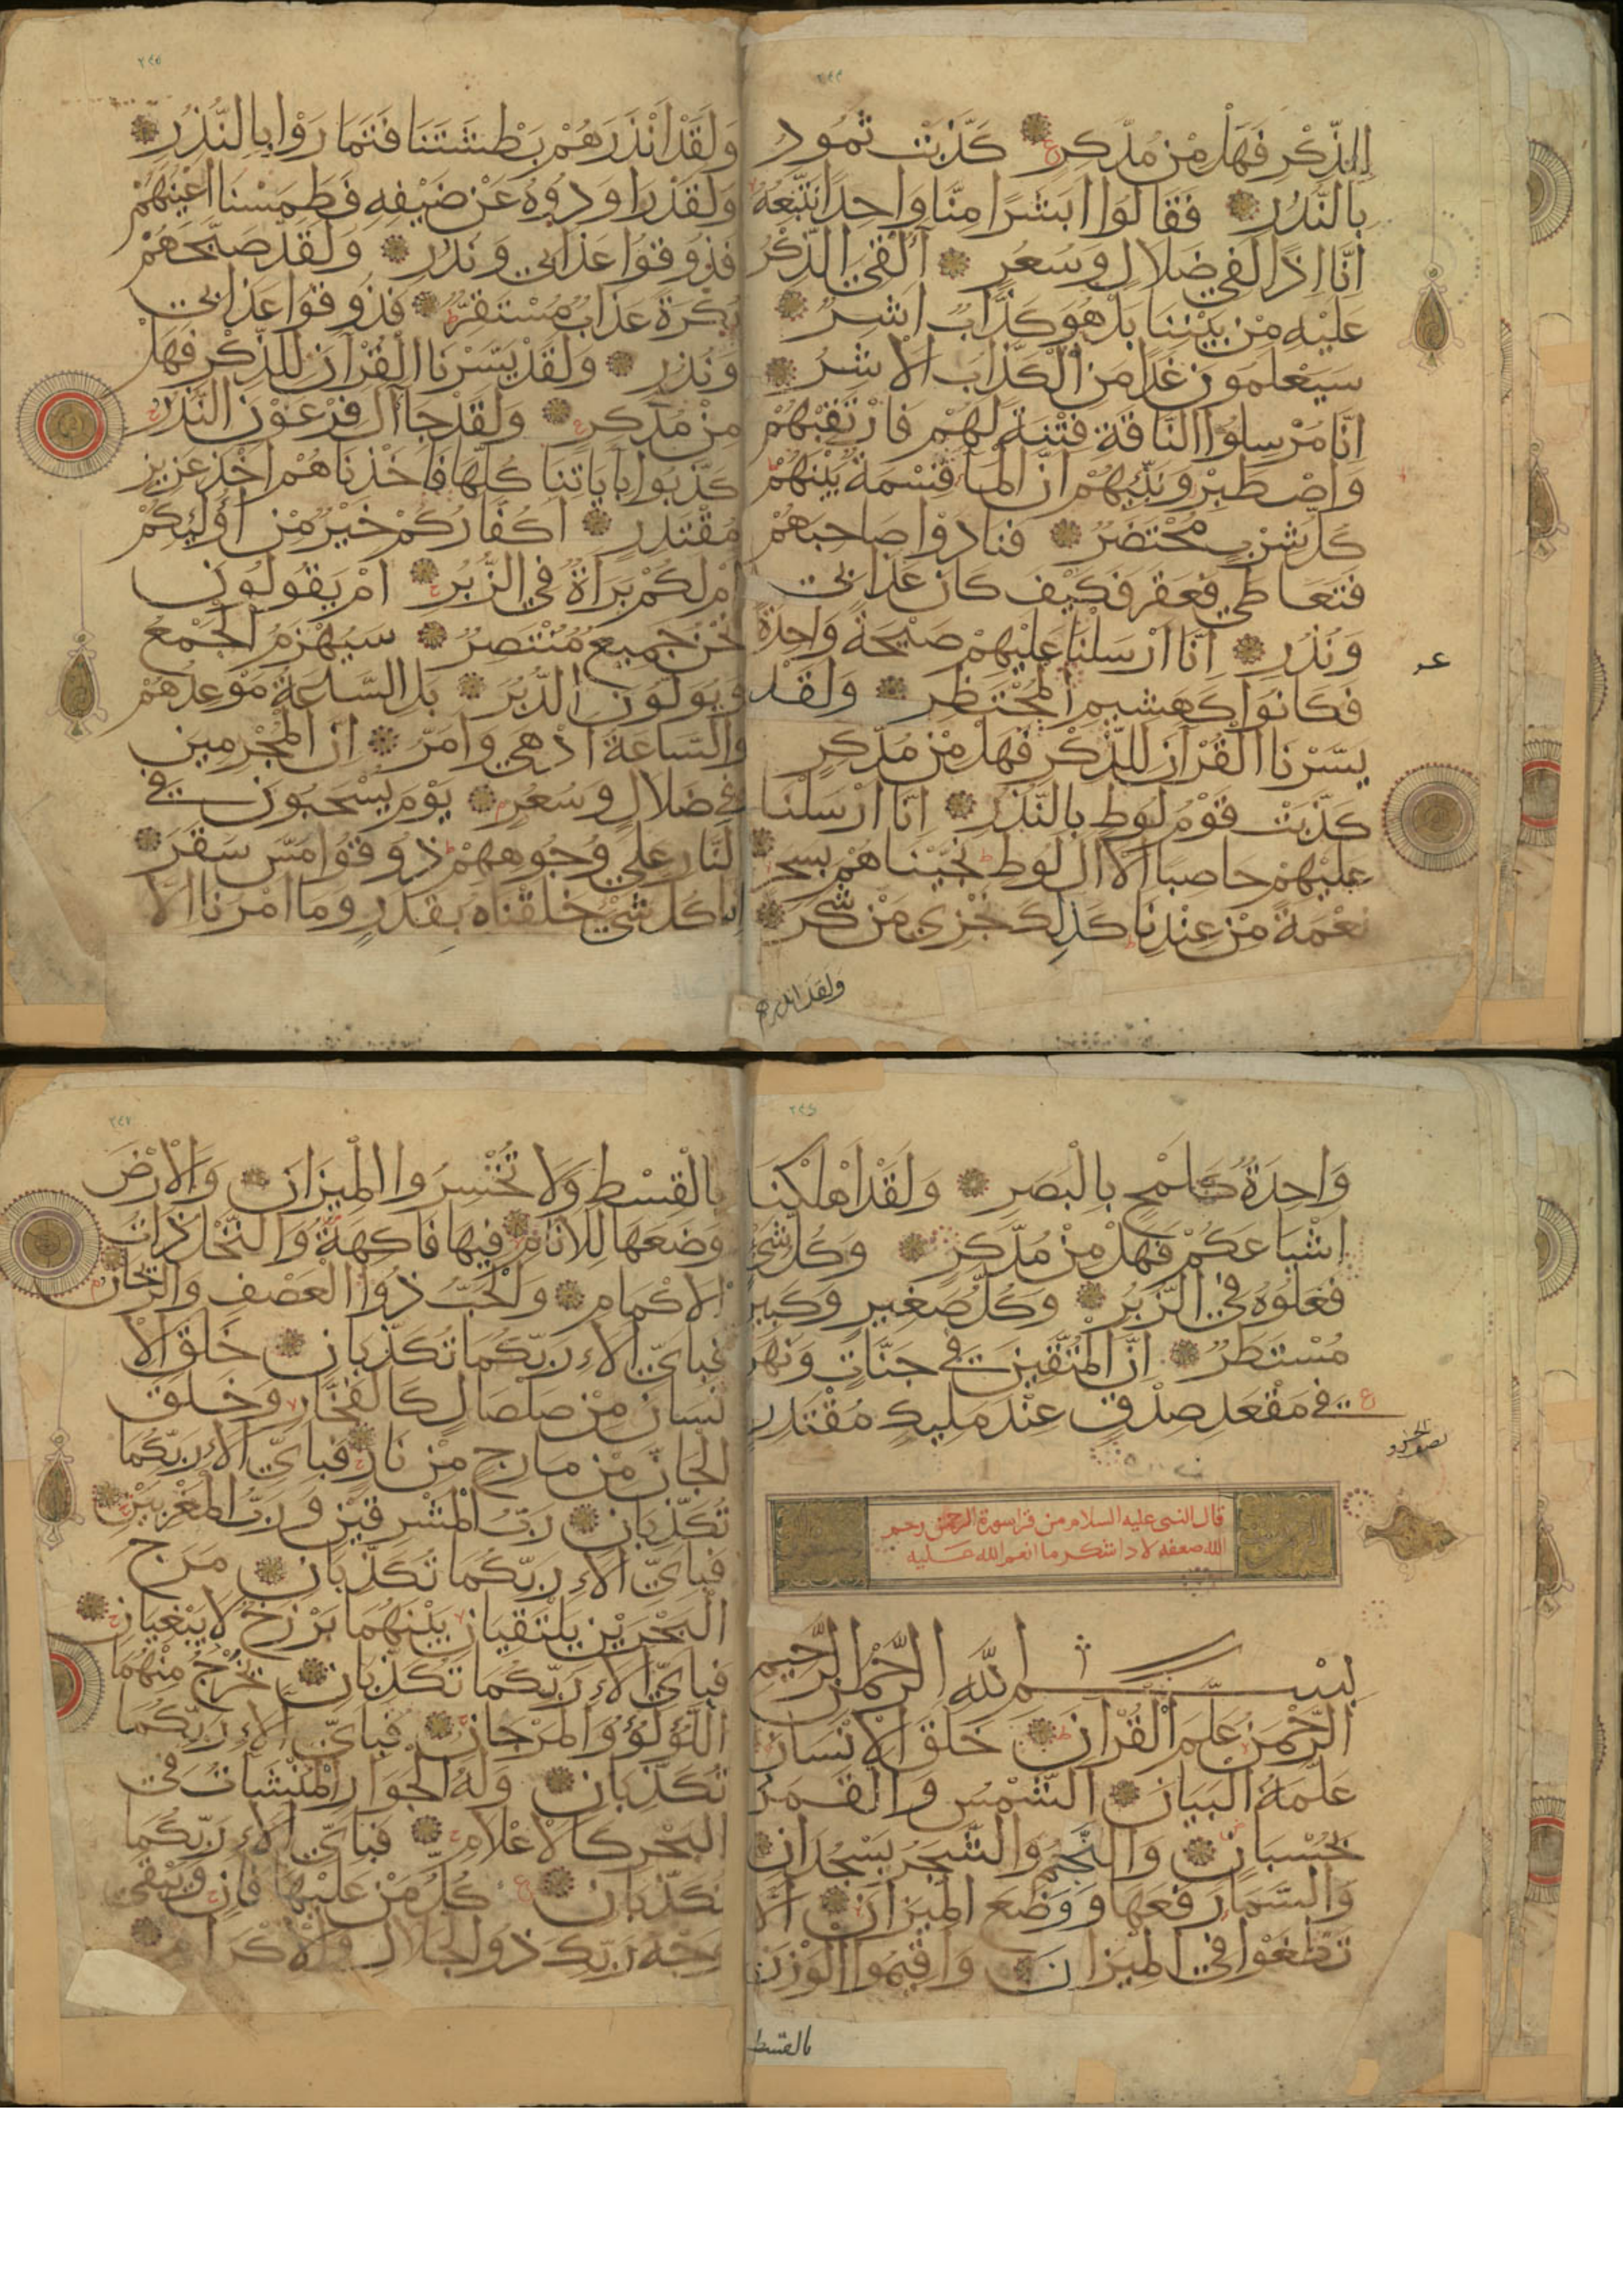 ٢٤٤
للذِّكْرِ فَهَلْ مِنْ مُدَّكِرٍ كَذَّبَتْ ثَمُودُ
بِالنُّذُرِ فَقَالُوا ابَشَرًا مِنَّا وَاحِدًا نَتَّبِعُهُ
اِنَّا اِذًا لَفِي ضَلَالٍ وَسُعُرٍ أَلْقِيَ الذِّكْرُ
عَلَيْهِ مِنْ بَيْنِنَا بَلْ هُوَ كَذَّابٌ اَشِرٌ
سَيَعْلَمُونَ غَدًا مَنِ الْكَذَّابُ الْاَشِرُ
اِنَّا مُرْسِلُوا النَّاقَةِ فِتْنَةً لَهُمْ فَارْتَقِبْهُمْ
وَاصْطَبِرْ وَنَبِّئْهُمْ اَنَّ الْمَاءَ قِسْمَةٌ بَيْنَهُمْ
كُلُّ شِرْبٍ مُحْتَضَرٌ فَنَادَوْا صَاحِبَهُمْ
فَتَعَاطَى فَعَقَرَ فَكَيْفَ كَانَ عَذَابِي
وَنُذُرِ اِنَّا اَرْسَلْنَا عَلَيْهِمْ صَيْحَةً وَاحِدَةً
فَكَانُوا كَهَشِيمِ الْمُحْتَظِرِ وَلَقَدْ
يَسَّرْنَا الْقُرْآنَ لِلذِّكْرِ فَهَلْ مِنْ مُدَّكِرٍ
كَذَّبَتْ قَوْمُ لُوطٍ بِالنُّذُرِ اِنَّا اَرْسَلْنَا
عَلَيْهِمْ حَاصِبًا اِلَّا آلَ لُوطٍ نَجَّيْنَاهُمْ بِسَحَرٍ
نِعْمَةً مِنْ عِنْدِنَا كَذَلِكَ نَجْزِي مَنْ شَكَرَ
ولقد انذرهم
عـ
٢٤٥
وَلَقَدْ اَنْذَرَهُمْ بَطْشَتَنَا فَتَمَارَوْا بِالنُّذُرِ
وَلَقَدْ رَاوَدُوهُ عَنْ ضَيْفِهِ فَطَمَسْنَا اَعْيُنَهُمْ
فَذُوقُوا عَذَابِي وَنُذُرِ وَلَقَدْ صَبَّحَهُمْ
بُكْرَةً عَذَابٌ مُسْتَقِرٌّ فَذُوقُوا عَذَابِي
وَنُذُرِ وَلَقَدْ يَسَّرْنَا الْقُرْآنَ لِلذِّكْرِ فَهَلْ
مِنْ مُدَّكِرٍ وَلَقَدْ جَاآلَ فِرْعَوْنَ النُّذُرُ
كَذَّبُوا بِاٰيَاتِنَا كُلِّهَا فَاَخَذْنَاهُمْ اَخْذَ عَزِيزٍ
مُقْتَدِرٍ اَكُفَّارُكُمْ خَيْرٌ مِنْ اُولَئِكُمْ
اَمْ لَكُمْ بَرَاةٌ فِي الزُّبُرِ اَمْ يَقُولُونَ
نَحْنُ جَمِيعٌ مُنْتَصِرٌ سَيُهْزَمُ الْجَمْعُ
وَيُوَلُّونَ الدُّبُرَ بَلِ السَّاعَةُ مَوْعِدُهُمْ
وَالسَّاعَةُ اَدْهَى وَاَمَرُّ اِنَّ الْمُجْرِمِينَ
فِي ضَلَالٍ وَسُعُرٍ يَوْمَ يُسْحَبُونَ فِي
النَّارِ عَلَى وُجُوهِهِمْ ذُوقُوا مَسَّ سَقَرَ
اِنَّا كُلَّ شَيْءٍ خَلَقْنَاهُ بِقَدَرٍ وَمَا اَمْرُنَا اِلَّا
٢٤٦
وَاحِدَةٌ كَلَمْحٍ بِالْبَصَرِ وَلَقَدْ اَهْلَكْنَا
اَشْيَاعَكُمْ فَهَلْ مِنْ مُدَّكِرٍ وَكُلُّ شَيْءٍ
فَعَلُوهُ فِي الزُّبُرِ وَكُلُّ صَغِيرٍ وَكَبِيرٍ
مُسْتَطَرٌ اِنَّ الْمُتَّقِينَ فِي جَنَّاتٍ وَنَهَرٍ
فِي مَقْعَدِ صِدْقٍ عِنْدَ مَلِيكٍ مُقْتَدِرٍ
قال النبى عليه السلام من قرا سورة الرحمن رحم
الله ضعفه لاداشكر ما انعم الله عليه
بِسْمِ اللَّهِ الرَّحْمَنِ الرَّحِيمِ
الرَّحْمَنُ عَلَّمَ الْقُرْآنَ خَلَقَ الْاِنْسَانَ
عَلَّمَهُ الْبَيَانَ الشَّمْسُ وَالْقَمَرُ
بِحُسْبَانٍ وَالنَّجْمُ وَالشَّجَرُ يَسْجُدَانِ
وَالسَّمَاءَ رَفَعَهَا وَوَضَعَ الْمِيزَانَ اَلَّا
تَطْغَوْا فِي الْمِيزَانِ وَاَقِيمُوا الْوَزْنَ
بالقسط
٢٤٧
بِالْقِسْطِ وَلَا تُخْسِرُوا الْمِيزَانَ وَالْاَرْضَ
وَضَعَهَا لِلْاَنَامِ فِيهَا فَاكِهَةٌ وَالنَّخْلُ ذَاتُ
الْاَكْمَامِ وَالْحَبُّ ذُوا الْعَصْفِ وَالرَّيْحَانُ
فَبِاَيِّ اٰلَاءِ رَبِّكُمَا تُكَذِّبَانِ خَلَقَ الْاِ
نْسَانَ مِنْ صَلْصَالٍ كَالْفَخَّارِ وَخَلَقَ
الْجَانَّ مِنْ مَارِجٍ مِنْ نَارٍ فَبِاَيِّ اٰلَاءِ رَبِّكُمَا
تُكَذِّبَانِ رَبُّ الْمَشْرِقَيْنِ وَرَبُّ الْمَغْرِبَيْنِ
فَبِاَيِّ اٰلَاءِ رَبِّكُمَا تُكَذِّبَانِ مَرَجَ
الْبَحْرَيْنِ يَلْتَقِيَانِ بَيْنَهُمَا بَرْزَخٌ لَا يَبْغِيَانِ
فَبِاَيِّ اٰلَاءِ رَبِّكُمَا تُكَذِّبَانِ يَخْرُجُ مِنْهُمَا
اللُّؤْلُؤُ وَالْمَرْجَانُ فَبِاَيِّ اٰلَاءِ رَبِّكُمَا
تُكَذِّبَانِ وَلَهُ الْجَوَارِ الْمُنْشَآتُ فِي
الْبَحْرِ كَالْاَعْلَامِ فَبِاَيِّ اٰلَاءِ رَبِّكُمَا
تُكَذِّبَانِ كُلُّ مَنْ عَلَيْهَا فَانٍ وَيَبْقَى
وَجْهُ رَبِّكَ ذُو الْجَلَالِ وَالْاِكْرَامِ